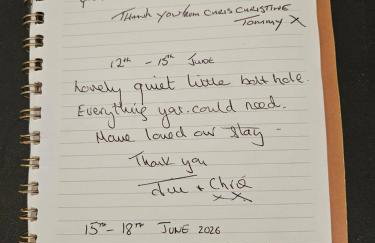 Thank you from CHRIS CHRISTINE
Tommy X
12th - 15th June
Lovely quiet little bolt hole.
Everything you could need.
Have loved our stay -
Thank you
+ Chris
x x
15TH - 18TH JUNE 2026